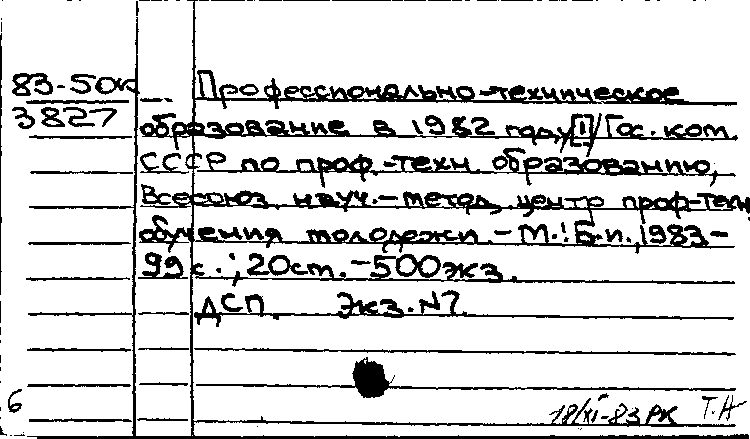 83-50к
3827
Профессионально-техническое
образование в 1982 году/[1]/Гос. ком.
СССР по проф.-техн. образованию,
Всесоюз. науч.-метод. центр проф-техн.
обучения молодежи.-М.:Б.и.,1983-
99 с.; 20см.-500экз.
ДСП. Экз.N7.
6
18/XI-83 РК Т.А